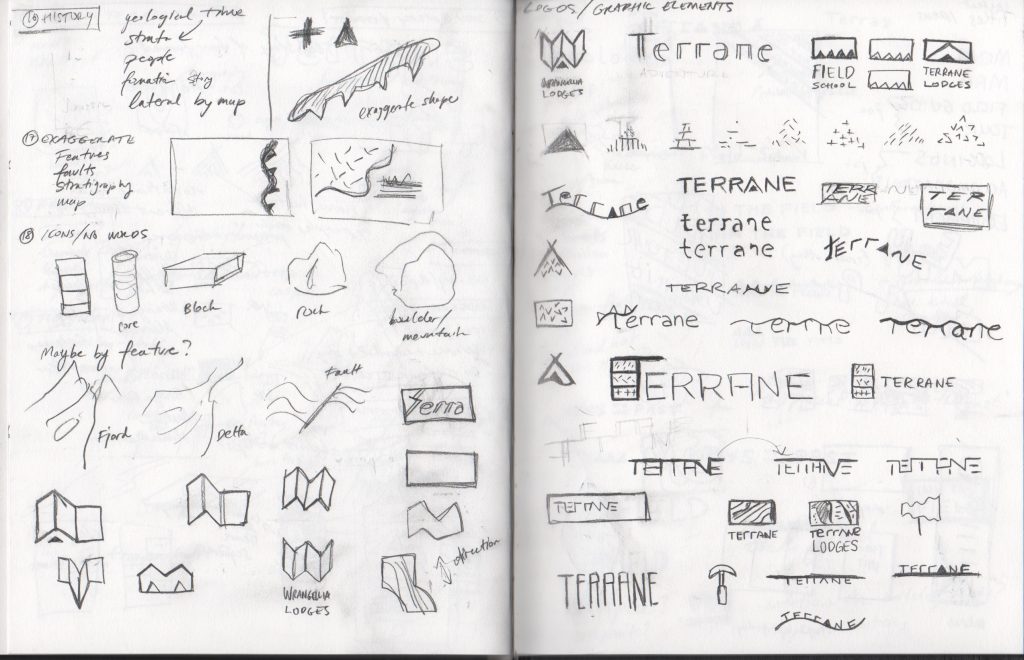 16 HISTORY
geological time
strata
people
formation story
lateral by map
exaggerate shape
17 EXAGGERATE
Features
faults
Stratigraphy
map
18 ICONS/NO WORDS
core
Block
rock
boulder/
mountain
Maybe by feature?
Fjord
Delta
Fault
Terra
direction
WRANGELLIA
LODGES
LOGOS/GRAPHIC ELEMENTS
WRANGELLIA
LODGES
Terrane
FIELD
SCHOOL
TERRANE
LODGES
Terrane
TERRANE
terrane
terrane
TERR
ANE
TER
RANE
terrANE
TERRANE
Terrane
Terrane
Terrane
TERRANE
TERRANE
TERRANE
TERRANE
TERRANE
TERRANE
TERRANE
TERRANE
LODGES
TERRANE
TERRANE
TERRANE
TERRANE